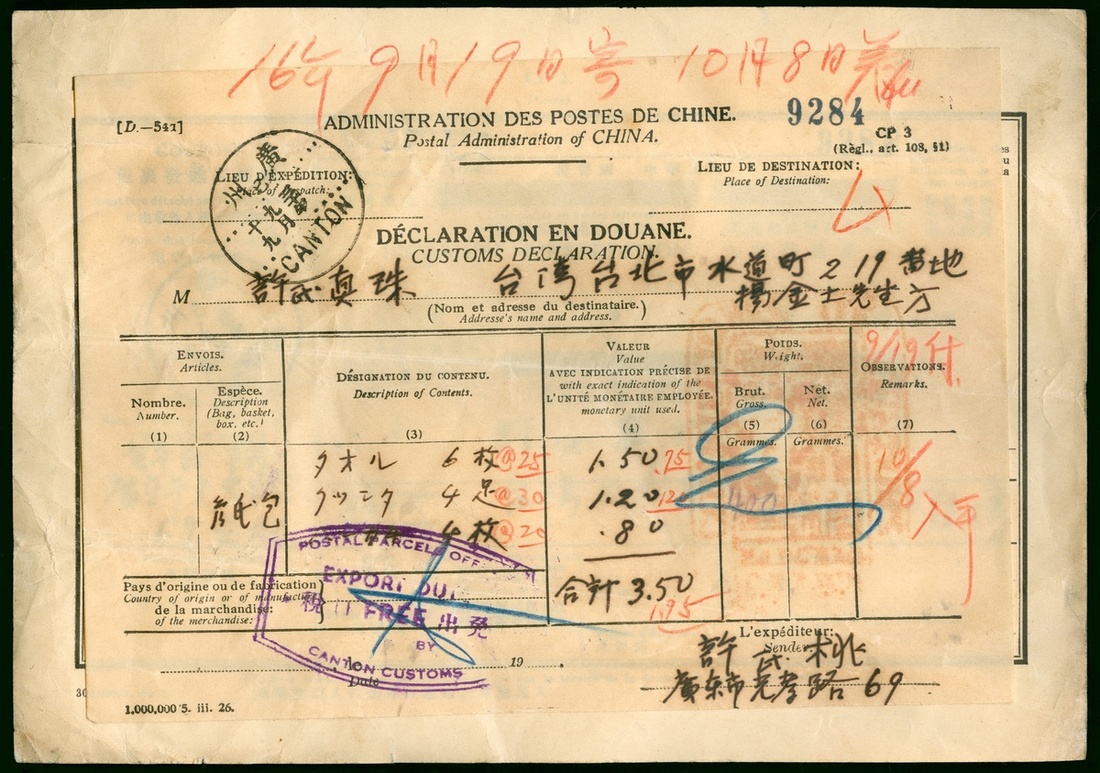 16年9月19日寄 10月8日着
[D.—541]
ADMINISTRATION DES POSTES DE CHINE.
Postal Administration of CHINA.
9284
CP 3
(Règl., art. 108, §1)
LIEU D'EXPÉDITION:
Place of Dispatch:
廣州
九月
十九
CANTON
LIEU DE DESTINATION:
Place of Destination:
DÉCLARATION EN DOUANE.
CUSTOMS DECLARATION.
M 許氏真珠 台湾台北市水道町219番地
楊金土先生方
(Nom et adresse du destinataire.)
Addresse's name and address.
ENVOIS.
Articles.
Nombre.
Number.
(1)
Espèce.
Description
(Bag, basket,
box, etc.)
(2)
DÉSIGNATION DU CONTENU.
Description of Contents.
(3)
VALEUR
Value
AVEC INDICATION PRÉCISE DE
with exact indication of the
L'UNITÉ MONÉTAIRE EMPLOYÉE.
monetary unit used.
(4)
POIDS.
Weight.
Brut.
Gross.
(5)
Grammes.
Net.
Net.
(6)
Grammes.
9/19付
OBSERVATIONS.
Remarks.
(7)
タオル 6枚 @25 1.50 .75
4足 @30 1.20 120
紙包
4枚 @20 .80
10/8入手
合計 3.50
1.95
POSTAL PARCELS OFFICE
EXPORT DUTY
FREE
税 出發
BY
CANTON CUSTOMS
Pays d'origine ou de fabrication
Country of origin or of manufacture
de la marchandise:
of the merchandise:
, le 19 .
Date
L'expéditeur:
Sender:
許武桃
廣東市光孝路69
1,000,000 5. iii. 26.